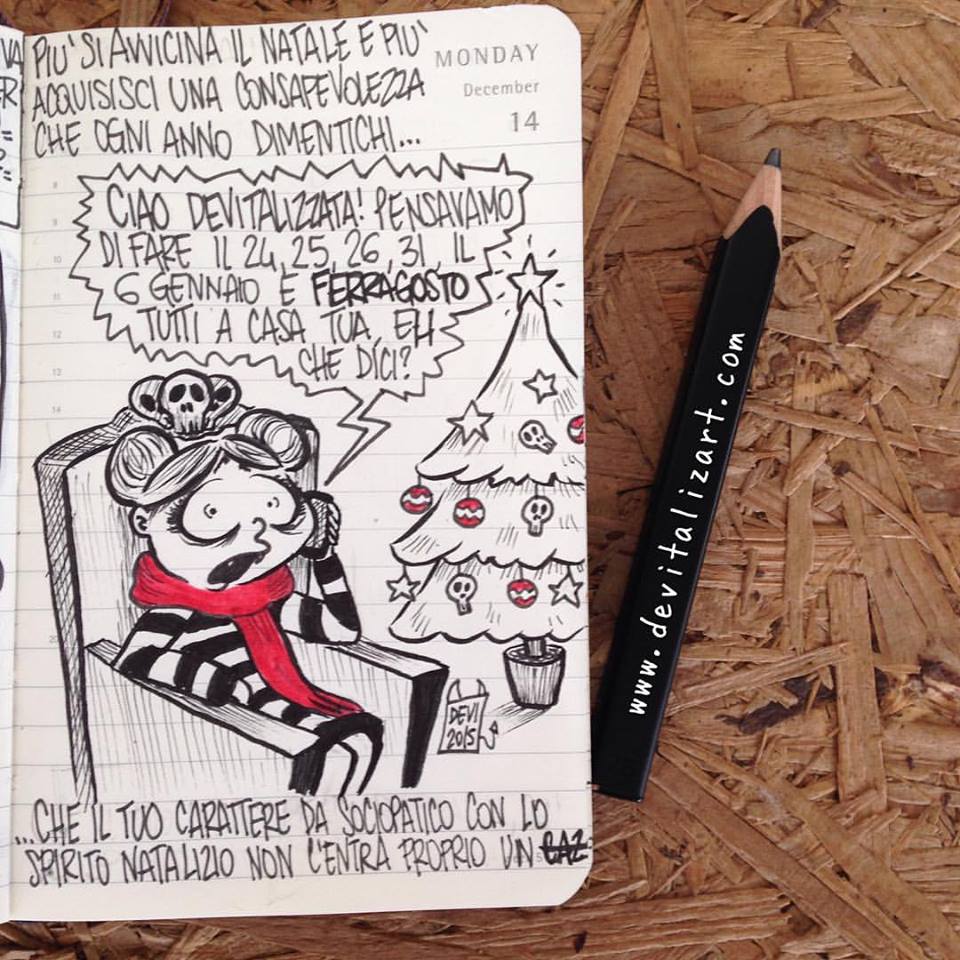 PIU' SI AVVICINA IL NATALE E PIU'
ACQUISISCI UNA CONSAPEVOLEZZA
CHE OGNI ANNO DIMENTICHI...
MONDAY
December
14
CIAO DEVITALIZZATA! PENSAVAMO
DI FARE IL 24, 25, 26, 31, IL
6 GENNAIO E FERRAGOSTO
TUTTI A CASA TUA, EH
CHE DICI?
8
9
10
11
12
13
14
20
DEVI
2015
...CHE IL TUO CARATTERE DA SOCIOPATICO CON LO
SPIRITO NATALIZIO NON C'ENTRA PROPRIO UN CAZ
www.devitalizart.com